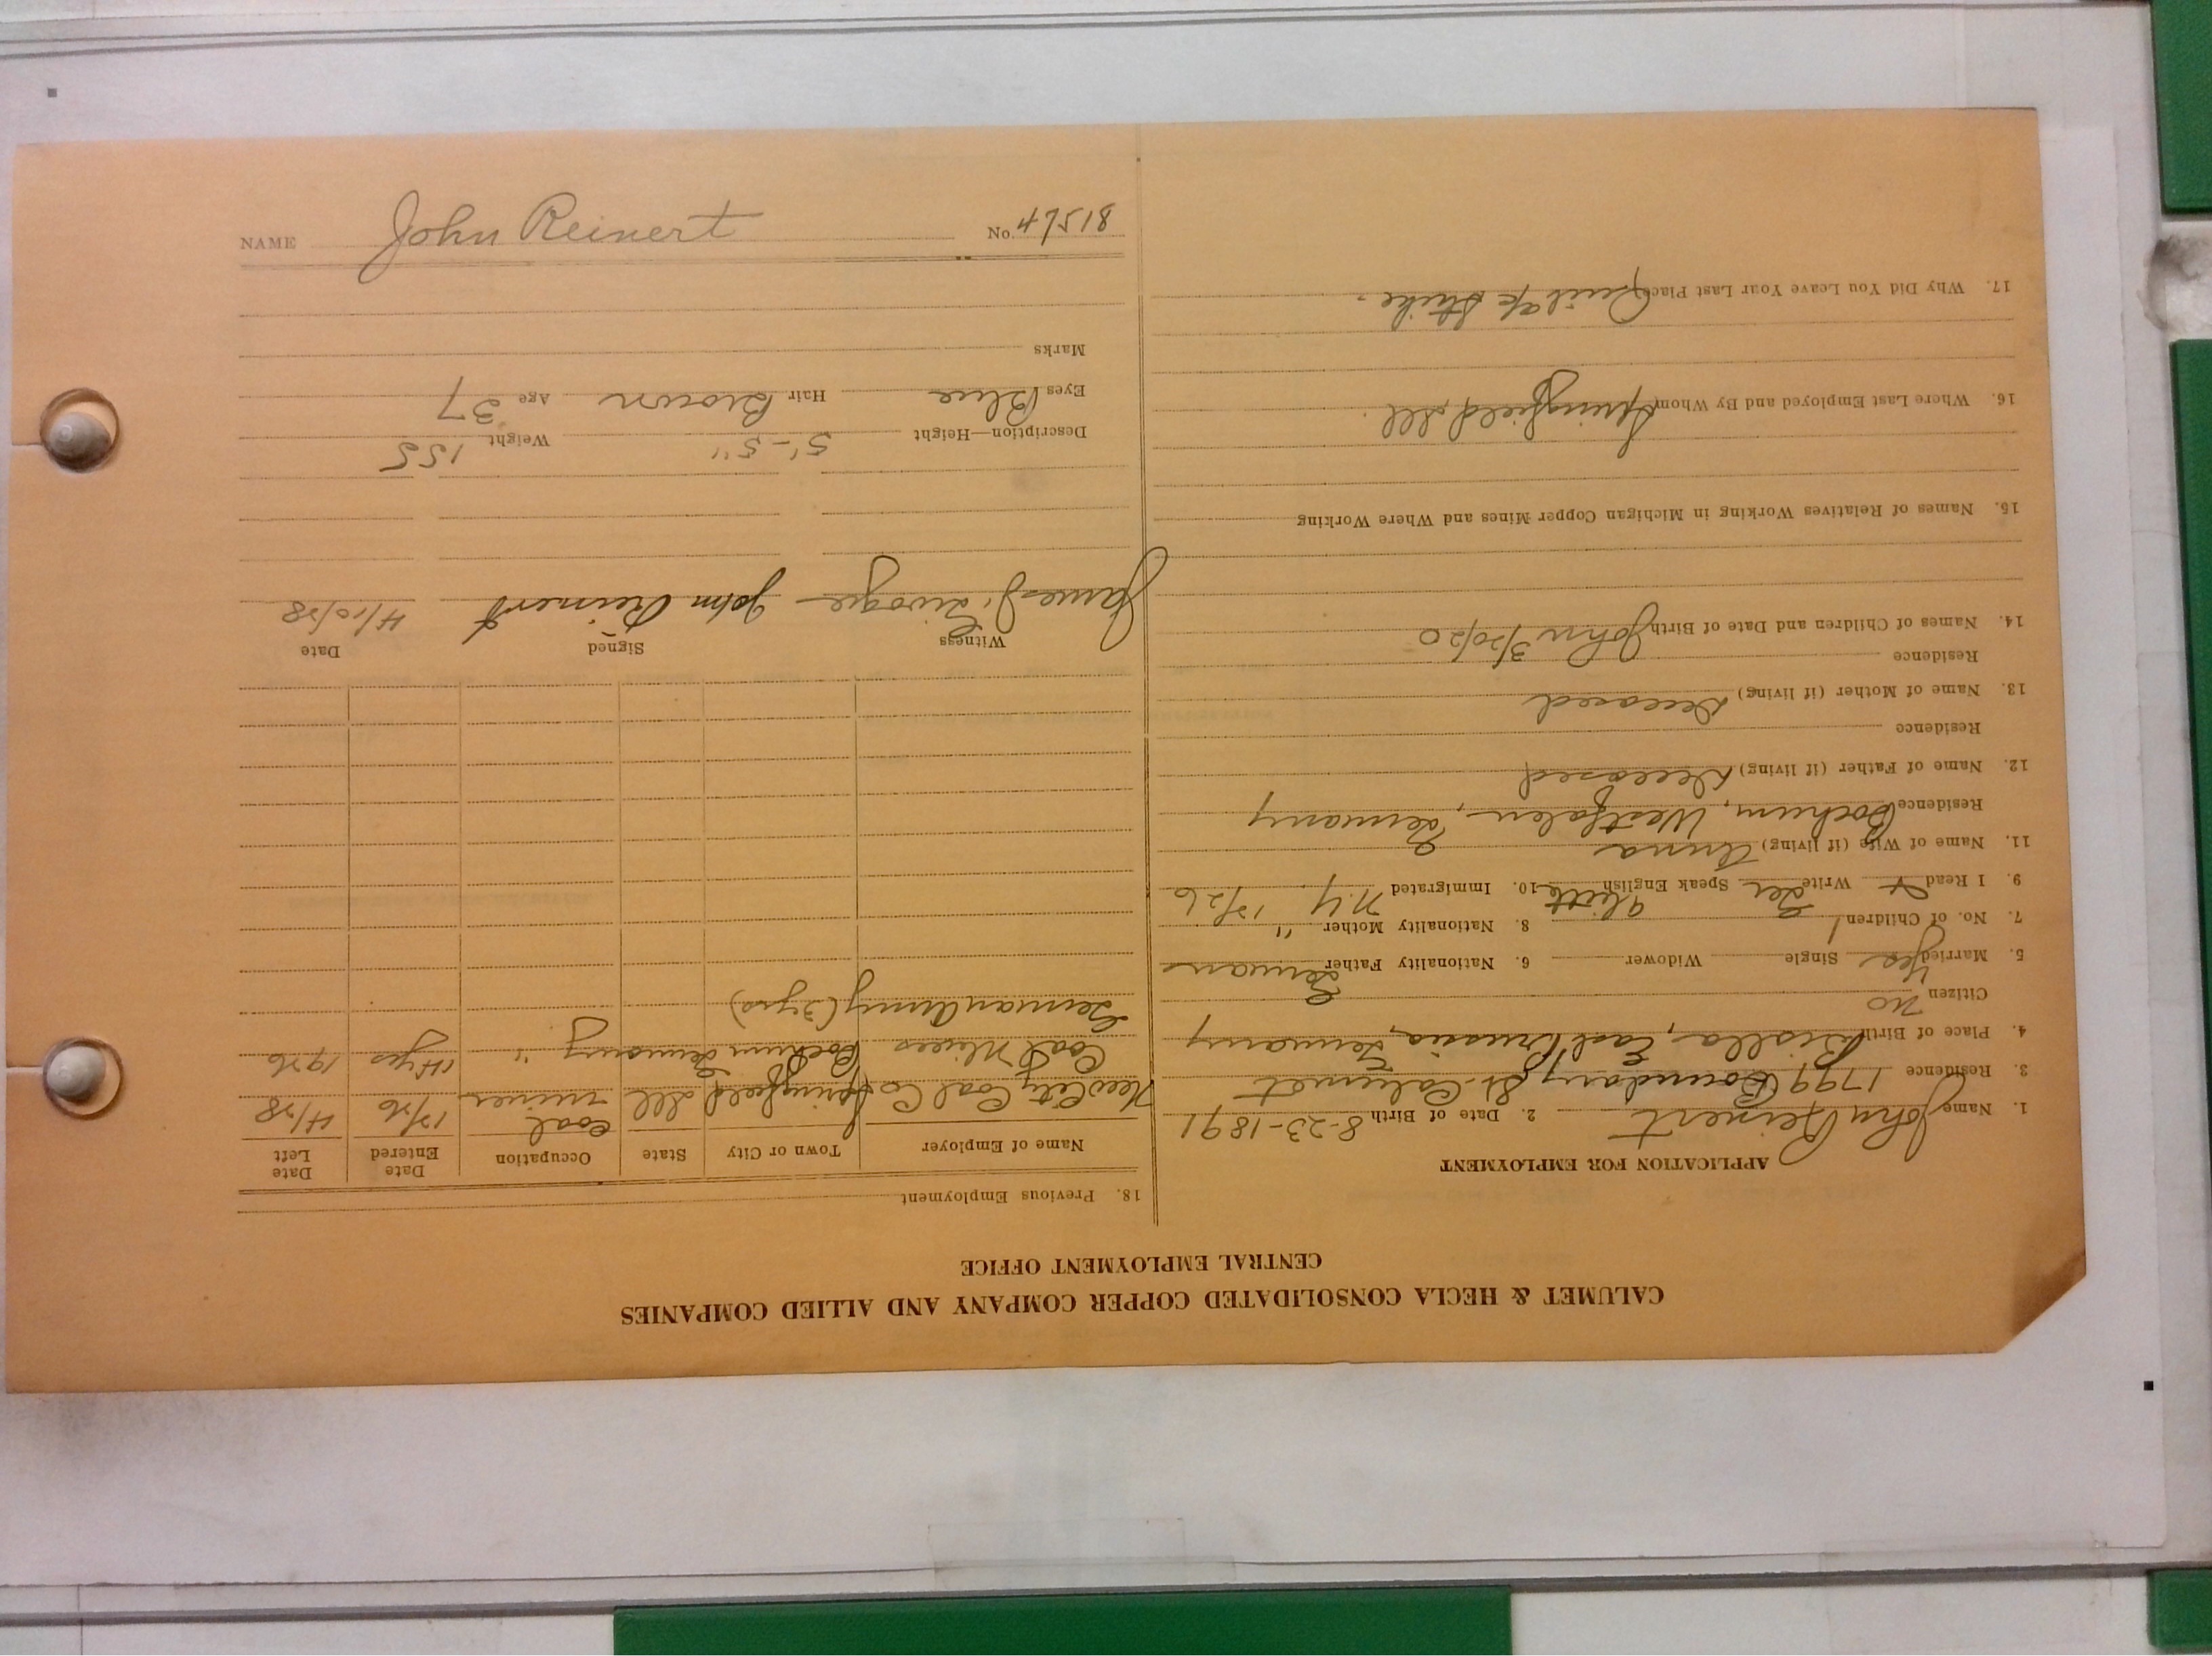 CALUMET & HECLA CONSOLIDATED COPPER COMPANY AND ALLIED COMPANIES
CENTRAL EMPLOYMENT OFFICE
APPLICATION FOR EMPLOYMENT
1. Name John Reinert 2. Date of Birth 8-23-1891
3. Residence 1799 Boundary St. Calumet
4. Place of Birth East Prussia, Germany
Citizen no
5. Married Yes Single Widower 6. Nationality Father German
7. No. of Children 1 8. Nationality Mother "
9. I Read Write Ger Speak English little 10. Immigrated N.Y. 12/26
11. Name of Wife (if living) Anna
Residence Bochum, Westfalen, Germany
12. Name of Father (if living) Deceased
Residence
13. Name of Mother (if living) Deceased
Residence
14. Names of Children and Date of Birth John 3/20/20
15. Names of Relatives Working in Michigan Copper Mines and Where Working
16. Where Last Employed and By Whom Springfield, Ill.
17. Why Did You Leave Your Last Place Strike.
18. Previous Employment
Name of Employer Town or City State Occupation Date Entered Date Left
City Coal Co Springfield Ill Coal miner 12/26 4/28
Coal Mines Bochum Germany " 14 yrs 1926
German Army (3 yrs)
Witness Signed Date
James John Reinert 4/10/28
Description—Height 5'-5" Weight 155
Eyes Blue Hair Brown Age 37
Marks
NAME John Reinert No. 47518